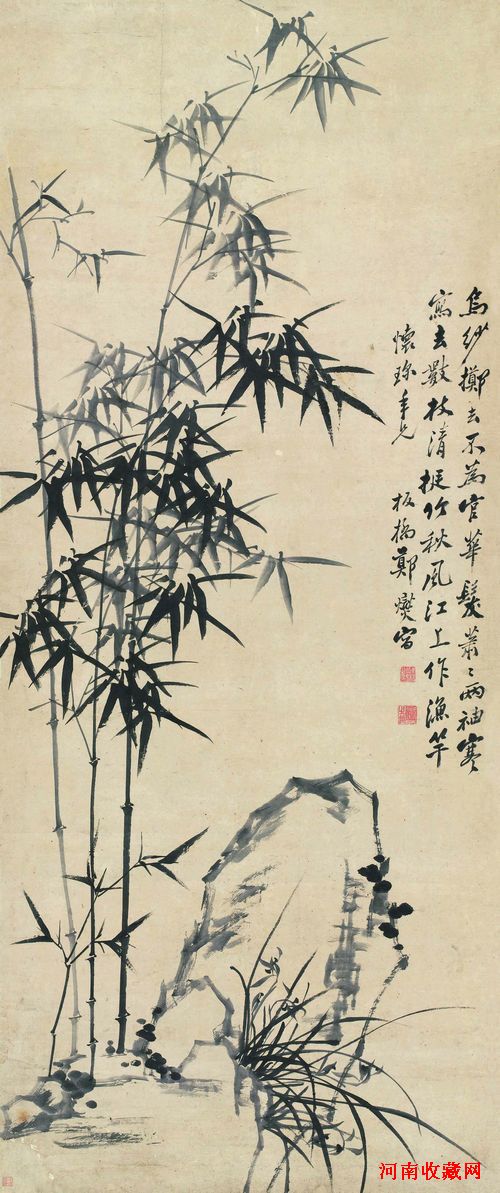 烏紗擲去不為官華髮蕭〻兩袖寒
寫去數枝清挺竹秋風江上作漁竿
懷珍年兄
板橋鄭燮寫
河南收藏网